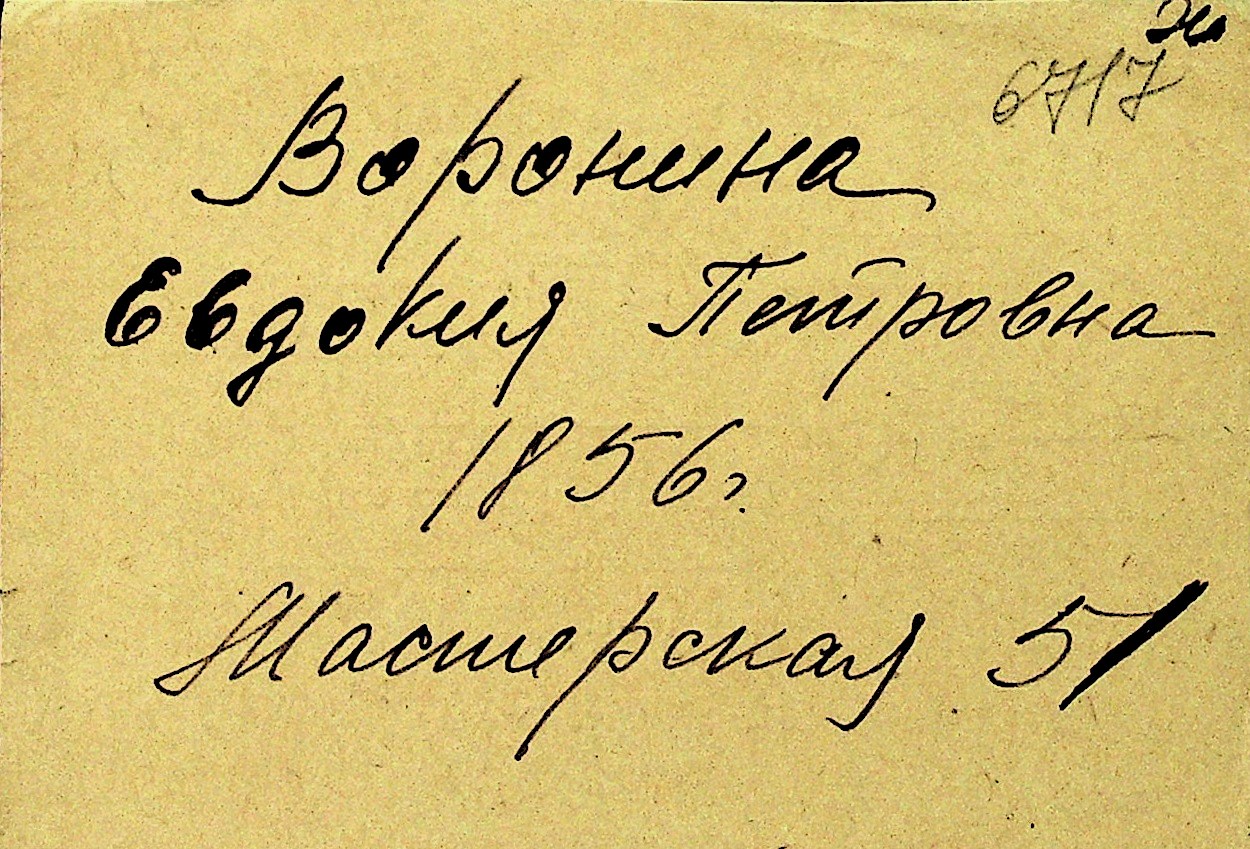 6717
Воронина
Евдокия Петровна
1856 г.
Мастерская 51